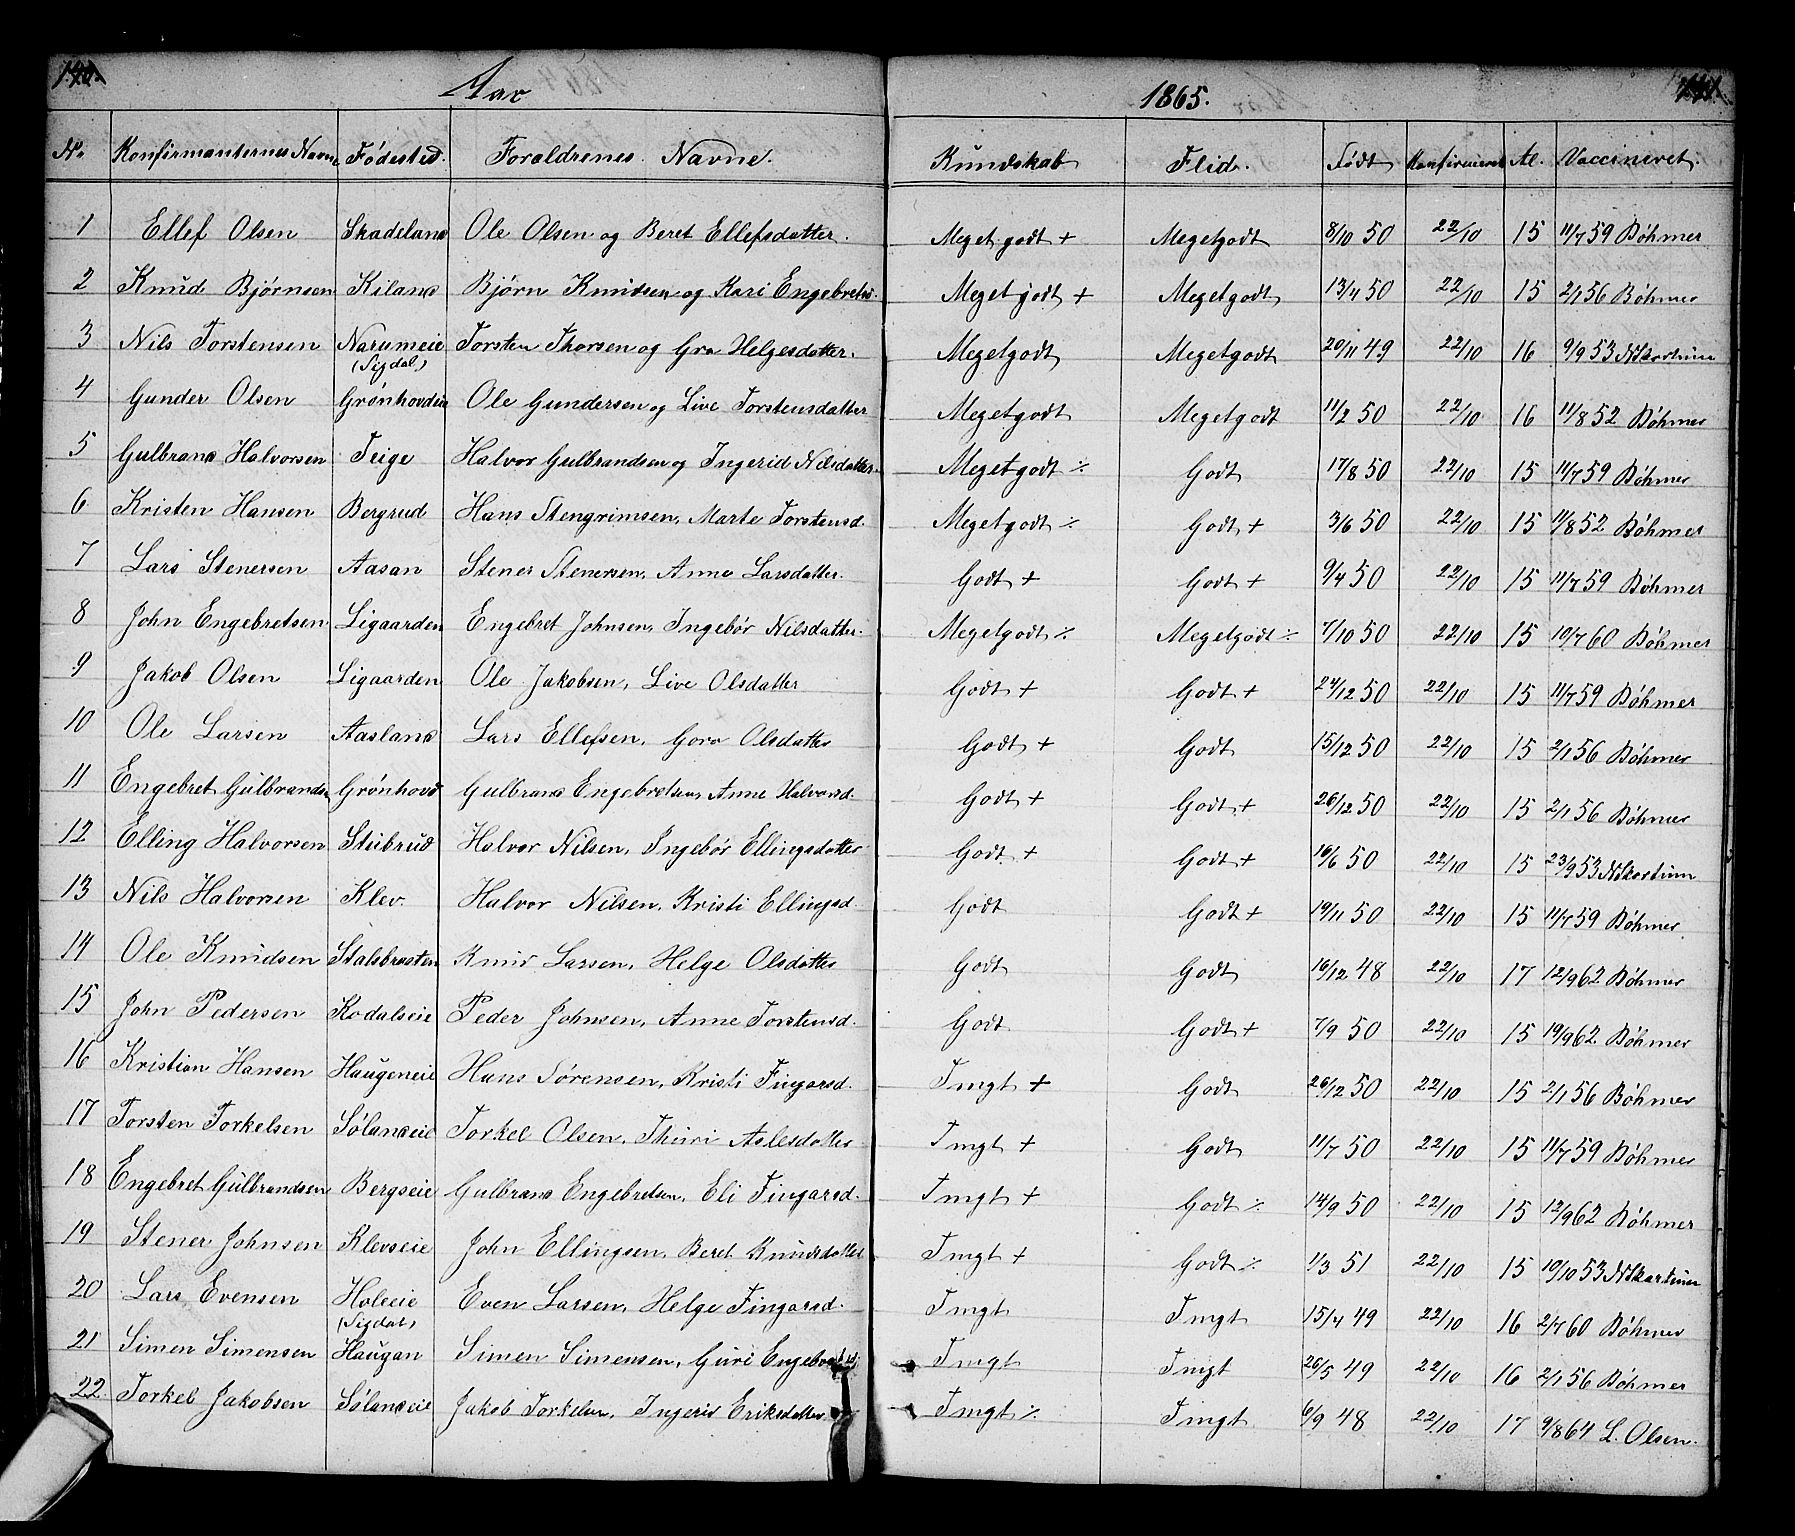 Aar 1865.
No. Konfirmanternes Navne Fødested. Forældrenes Navne. Kundskab Flid. Født Konfirmeret Al. Vaccineret.
1 Ellef Olsen Skadeland Ole Olsen og Beret Ellefsdatter. Meget godt + Megetgodt 8/10 50 22/10 15 11/7 59 Bøhmer
2 Knud Bjørnsen Kiland Bjørn Knudsen og Kari Engebretsd. Meget godt + Megetgodt 13/4 50 22/10 15 2/1 56 Bøhmer
3 Nils Torstensen Narumeie (Sigdal) Torsten Thorsen og Gro Helgesdatter. Megetgodt Megetgodt 20/11 49 22/10 16 9/9 53 NSkartum
4 Gunder Olsen Grønhovdeie Ole Gundersen og Live Torstensdatter Megetgodt Megetgodt 11/2 50 22/10 16 11/8 52 Bøhmer
5 Gulbrand Halvorsen Teige Halvor Gulbrandsen og Ingerid Nilsdatter. Megetgodt ÷ Godt 17/8 50 22/10 15 11/7 59 Bøhmer
6 Kristen Hansen Bergrud Hans Stengrimsen, Marte Torstensd. Megetgodt ÷ Godt + 3/6 50 22/10 15 11/8 52 Bøhmer
7 Lars Stenersen Aasan Stener Stenersen, Anne Larsdatter. Godt + Godt + 9/4 50 22/10 15 11/7 59 Bøhmer
8 John Engebretsen Ligaarden Engebret Johnsen, Ingebør Nilsdatter. Megetgodt ÷ Megetgodt ÷ 7/10 50 22/10 15 10/7 60 Bøhmer
9 Jakob Olsen Ligaarden Ole Jakobsen, Live Olsdatter Godt + Godt + 24/12 50 22/10 15 11/7 59 Bøhmer
10 Ole Larsen Aasland Lars Ellefsen, Goro Olsdatter Godt + Godt 15/12 50 22/10 15 2/1 56 Bøhmer
11 Engebret Gulbrandsen Grønhovd Gulbrand Engebretsen, Anne Halvorsd. Godt + Godt + 26/12 50 22/10 15 2/1 56 Bøhmer
12 Elling Halvorsen Stubrud Halvor Nilsen, Ingebør Ellingsdatter Godt + Godt + 16/6 50 22/10 15 23/9 53 NSkartum
13 Nils Halvorsen Klev. Halvor Nilsen, Kristi Ellingsd. Godt Godt + 19/11 50 22/10 15 11/7 59 Bøhmer.
14 Ole Knudsen Stalsbraaten Knud Larsen, Helge Olsdatter Godt Godt 16/12 48 22/10 17 12/9 62 Bøhmer
15 John Pedersen Kodalseie Peder Johnsen, Anne Torstensd. Godt Godt + 7/9 50 22/10 15 19/9 62 Bøhmer
16 Kristian Hansen Haugeneie Hans Sørensen, Kristi Fingarsd. Tmgt + Godt 26/12 50 22/10 15 2/1 56 Bøhmer
17 Torsten Torkelsen Sølandseie Torkel Olsen, Thuri Aslesdatter Tmgt + Godt 11/7 50 22/10 15 11/7 59 Bøhmer
18 Engebret Gulbrandsen Bergseie Gulbrand Engebretsen, Eli Fingarsd. Tmgt + Godt ÷ 14/9 50 22/10 15 12/9 62 Bøhmer
19 Stener Johnsen Klevseie John Ellingsen, Beret Knudsdatter Tmgt + Godt ÷ 1/3 51 22/10 15 10/10 53 NSkartum
20 Lars Evensen Holeeie (Sigdal) Even Larsen, Helge Fingarsd. Tmgt Tmgt 15/4 49 22/10 16 2/7 60 Bøhmer
21 Simen Simensen Haugan Simen Simensen, Guri Tmgt Tmgt 26/5 49 22/10 16 2/1 56 Bøhmer
22 Torkel Jakobsen Sølandseie Jakob Torkelsen, Ingerid Eriksdatter Tmgt ÷ Tmgt 6/9 48 22/10 17 9/8 64 L. Olsen.